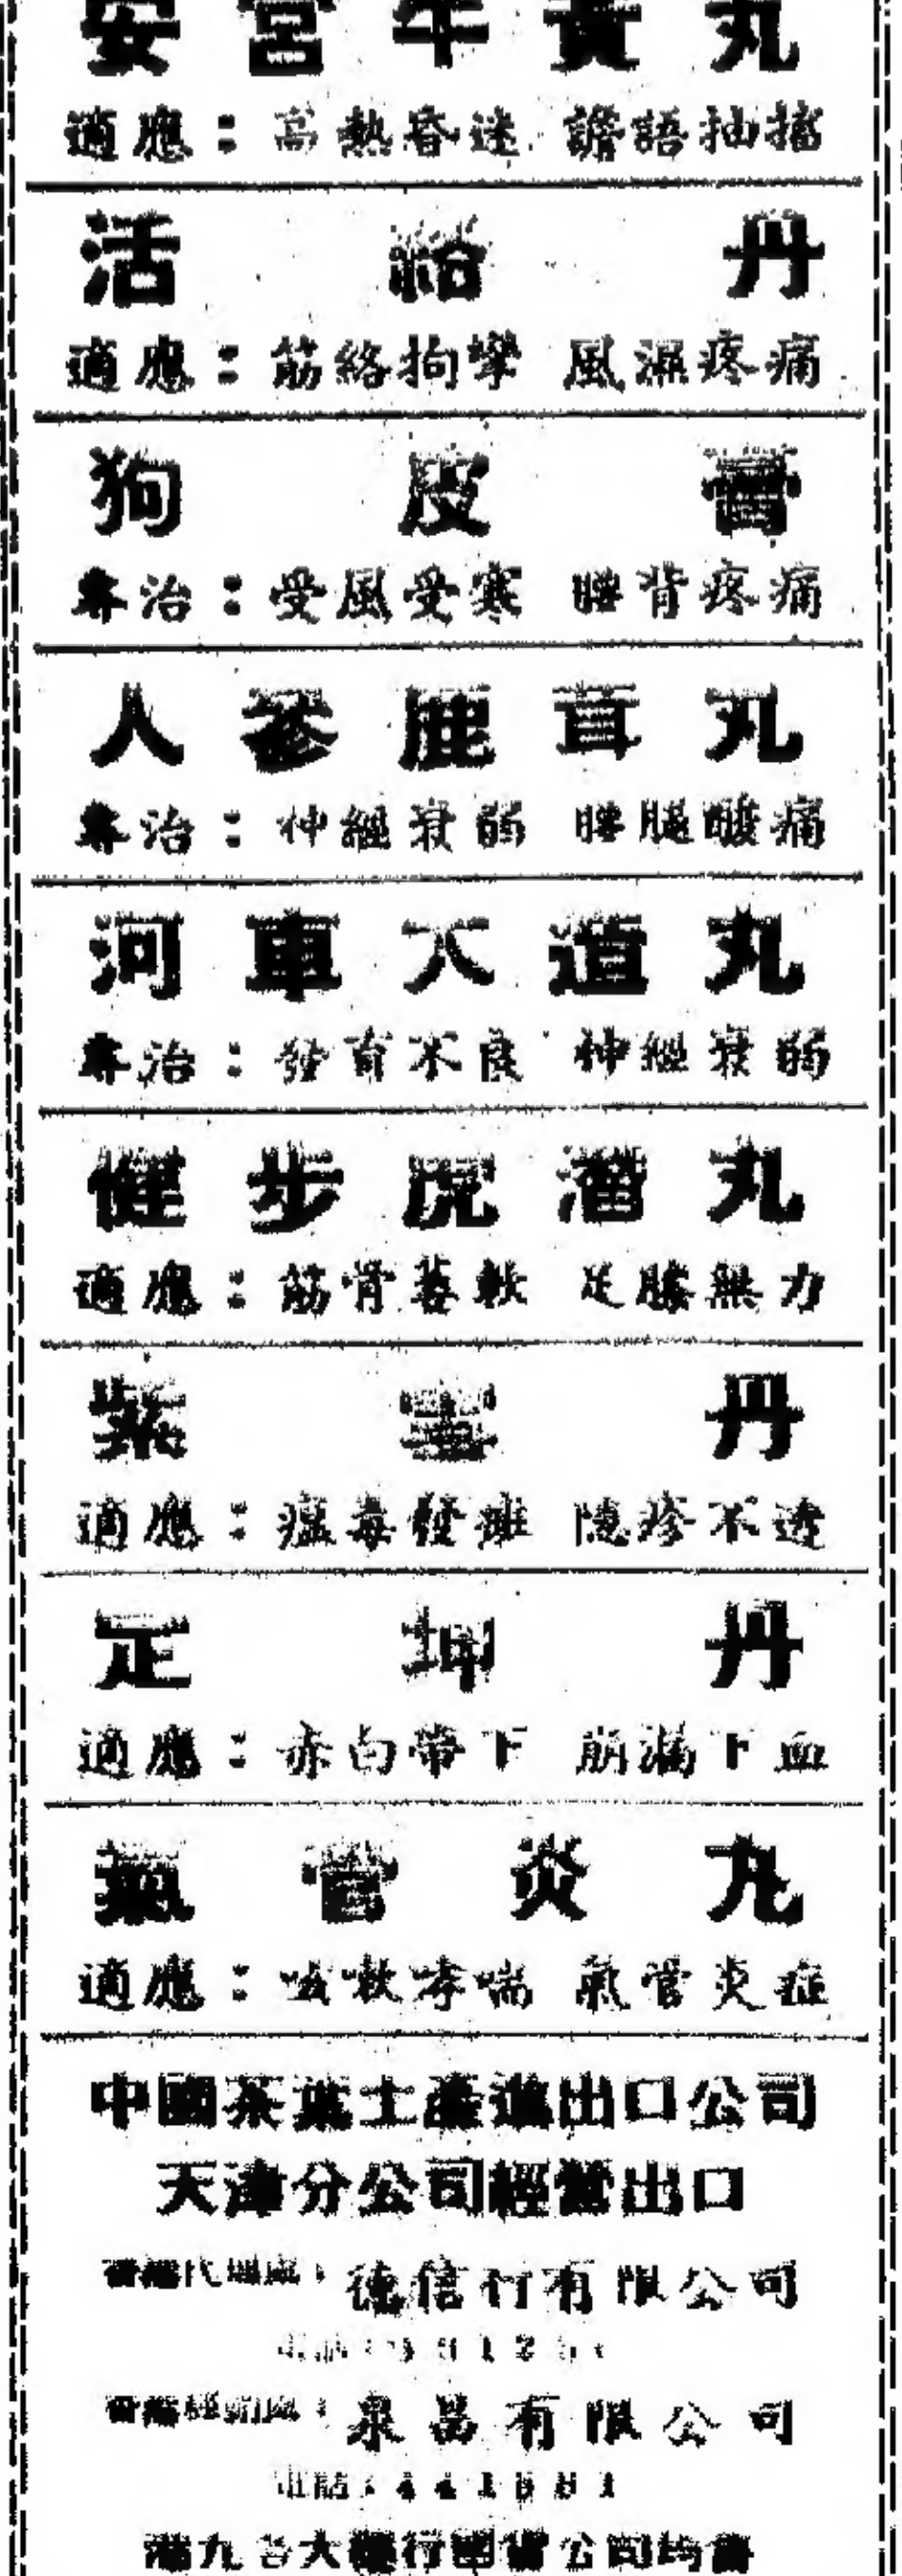 安宮牛黃丸
適應：高熱昏迷 譫語抽搐
活絡丹
適應：筋絡拘攣 風濕疼痛
狗皮膏
專治：受風受寒 腰背疼痛
人參鹿茸丸
專治：神經衰弱 腰腿酸痛
河車大造丸
專治：發育不良 神經衰弱
健步虎潛丸
適應：筋骨萎軟 足膝無力
紫雪丹
適應：瘟毒發斑 隱疹不透
定坤丹
適應：赤白帶下 崩漏下血
氣管炎丸
適應：咳嗽哮喘 氣管炎症
中國茶葉土產進出口公司
天津分公司經營出口
香港代理處：德信行有限公司
電話：
香港經銷處：泉昌有限公司
電話：
港九各大藥行國貨公司均售